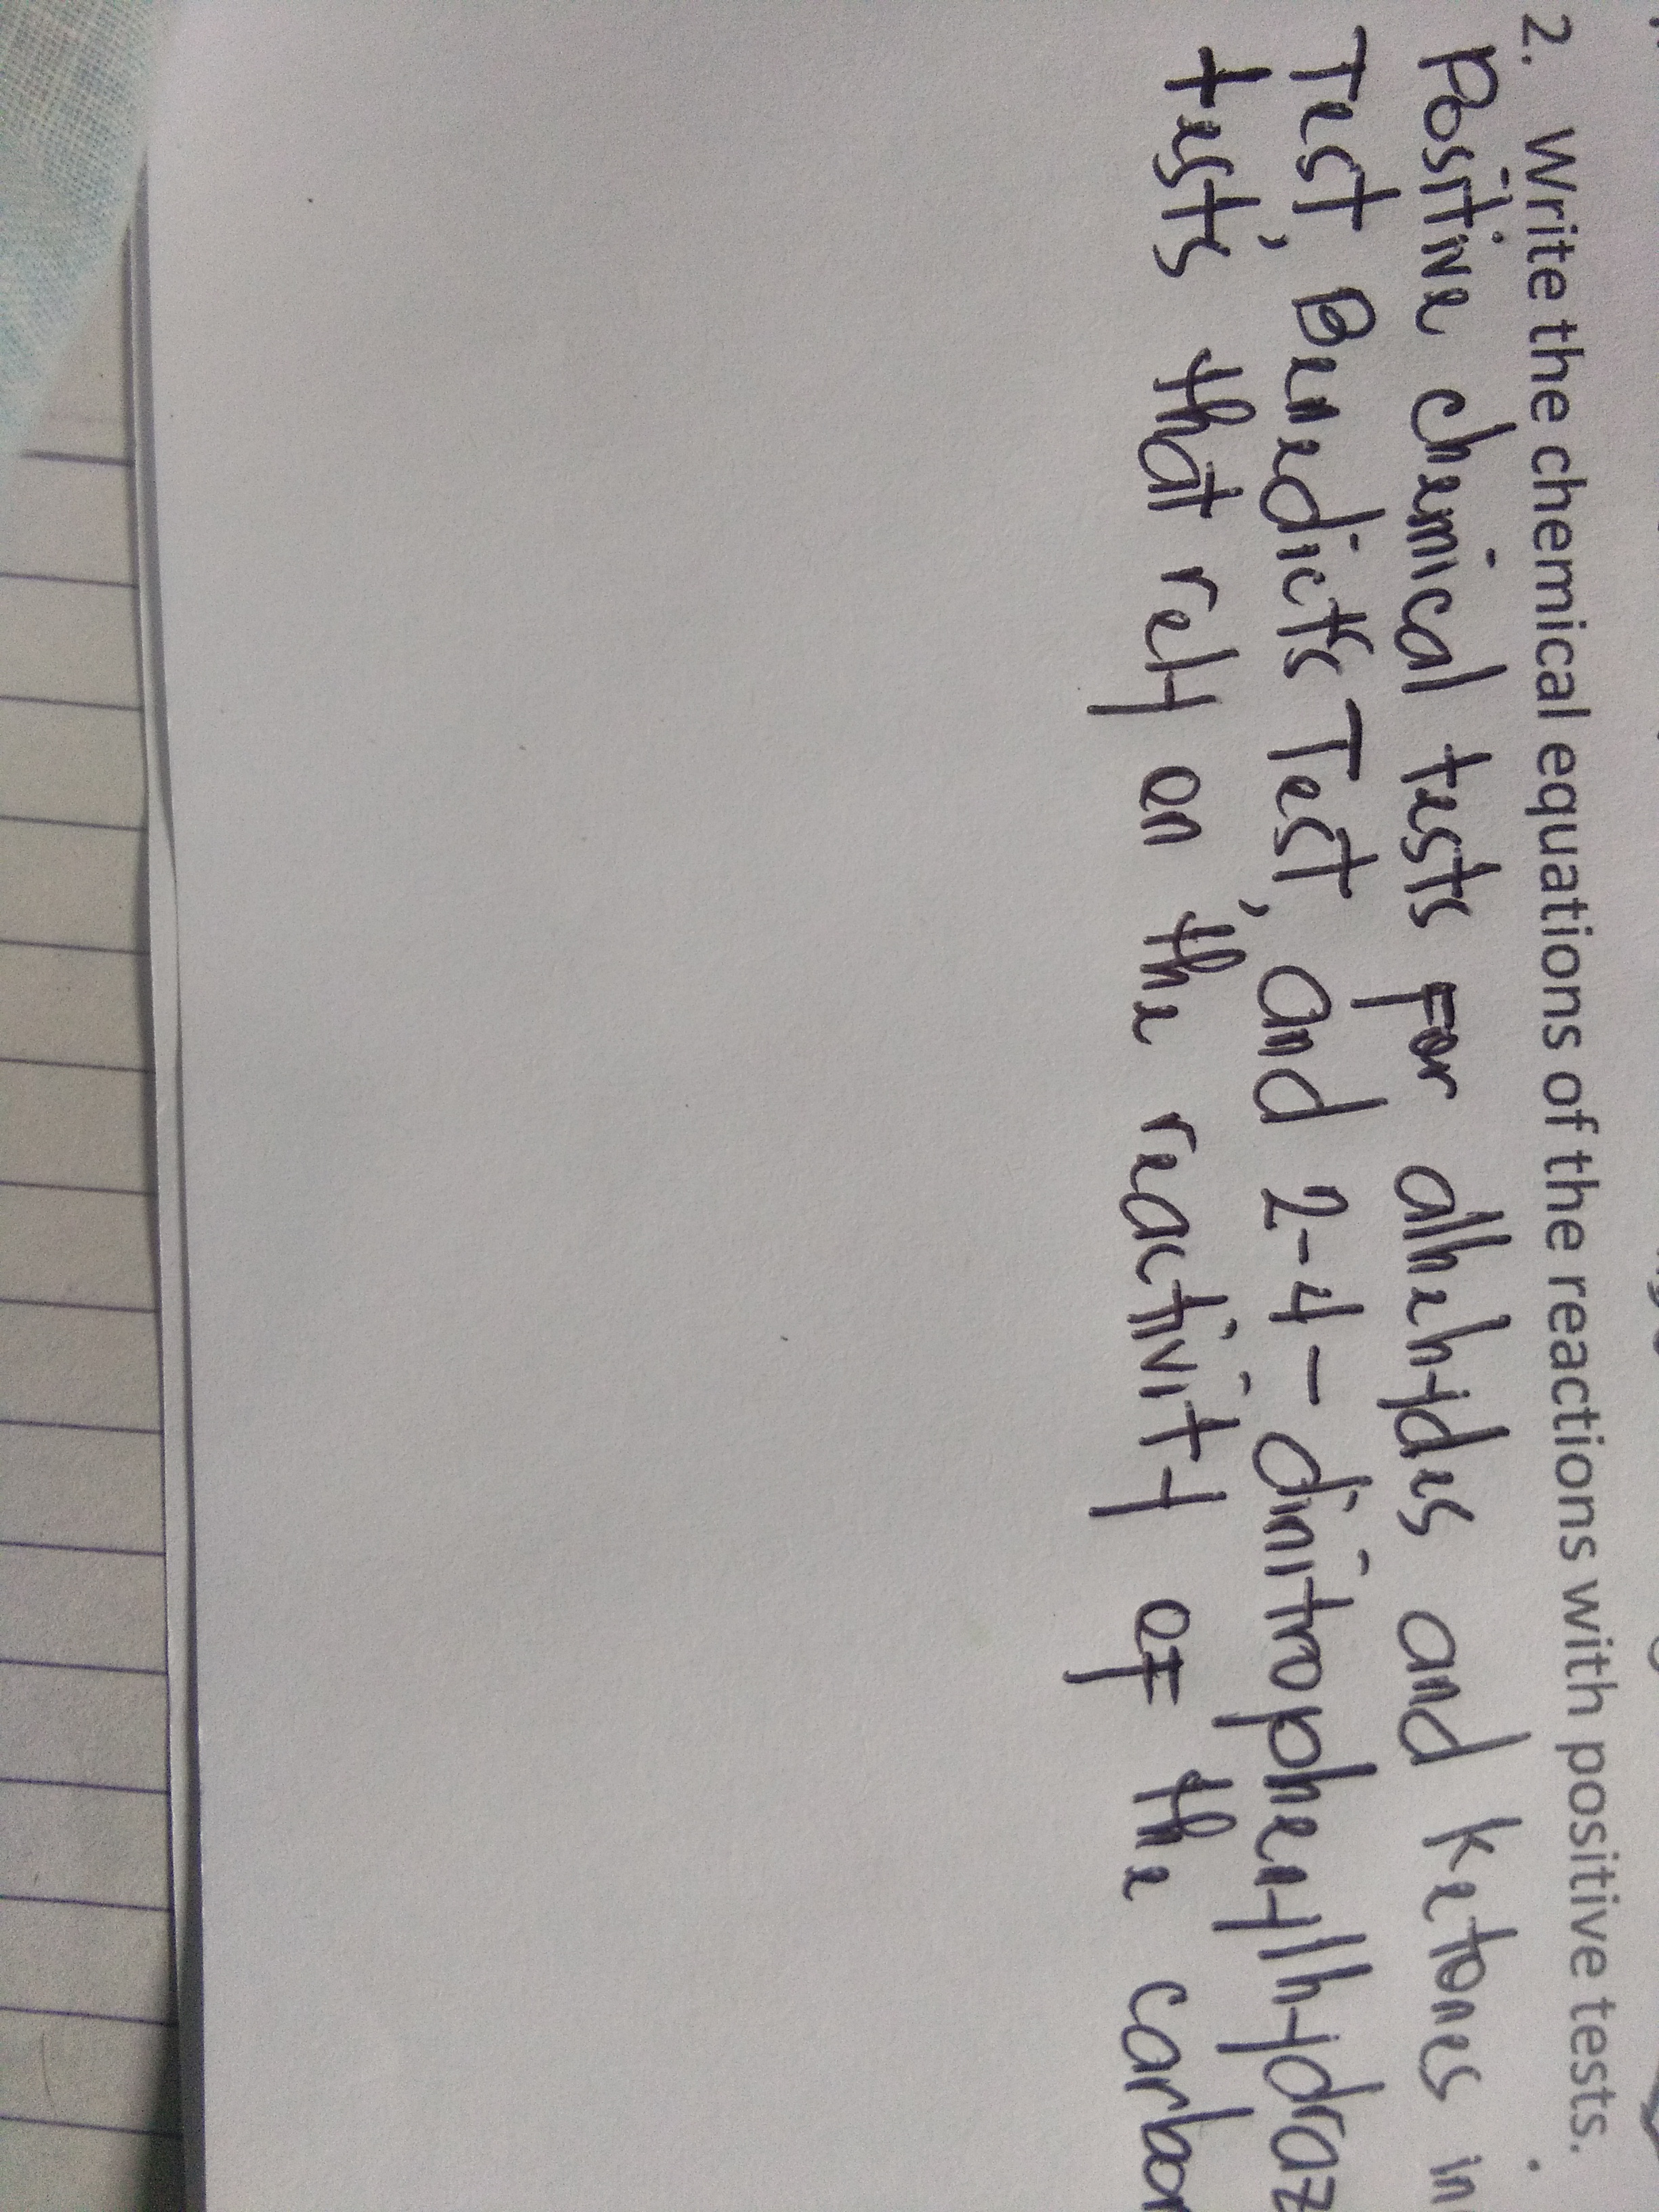 2. Write the chemical equations of the reactions with positive tests.
Positive chemical tests for alhehydes and ketones in
Test, Benedict's Test, and 2-4-dinitrophenylhydraz
tests that rely on the reactivity of the carbon